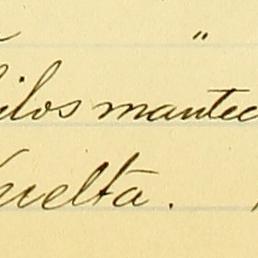 "
ilos mantec
Vuelta.